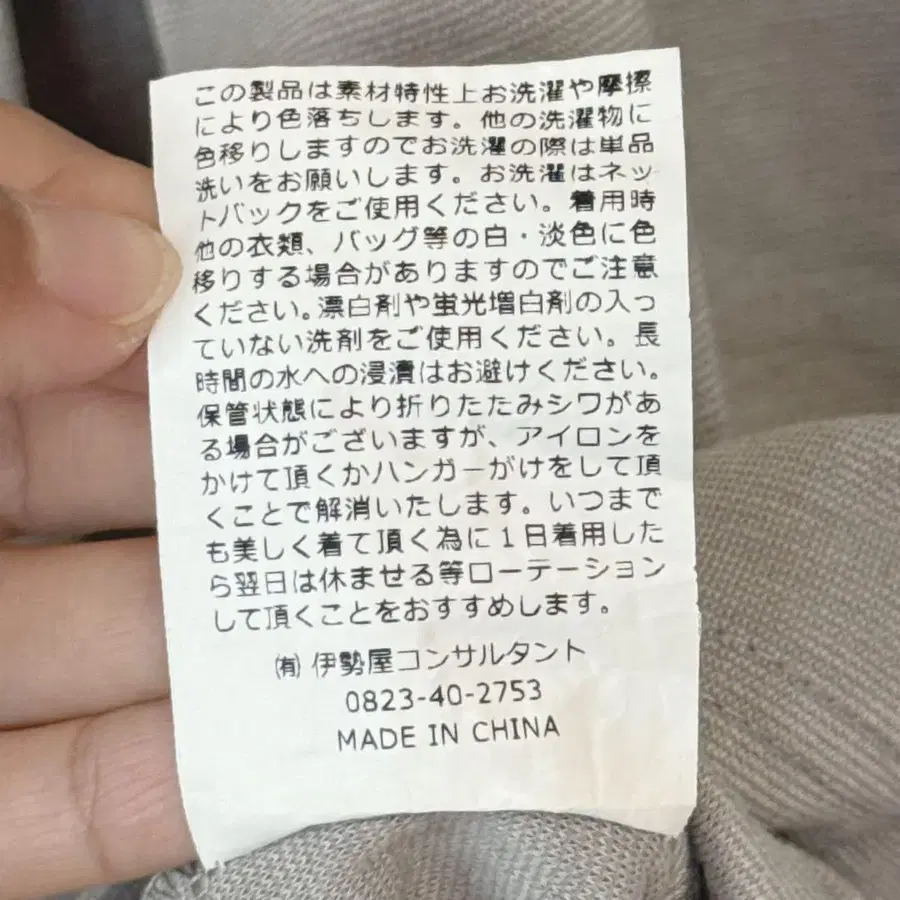 この製品は素材特性上お洗濯や摩擦
により色落ちします。他の洗濯物に
色移りしますのでお洗濯の際は単品
洗いをお願いします。お洗濯はネッ
トバックをご使用ください。着用時
他の衣類、バッグ等の白・淡色に色
移りする場合がありますのでご注意
ください。漂白剤や蛍光増白剤の入っ
ていない洗剤をご使用ください。長
時間の水への浸漬はお避けください。
保管状態により折りたたみシワがあ
る場合がございますが、アイロンを
かけて頂くかハンガーがけをして頂
くことで解消いたします。いつまで
も美しく着て頂く為に1日着用した
ら翌日は休ませる等ローテーション
して頂くことをおすすめします。
㈲ 伊勢屋コンサルタント
0823-40-2753
MADE IN CHINA